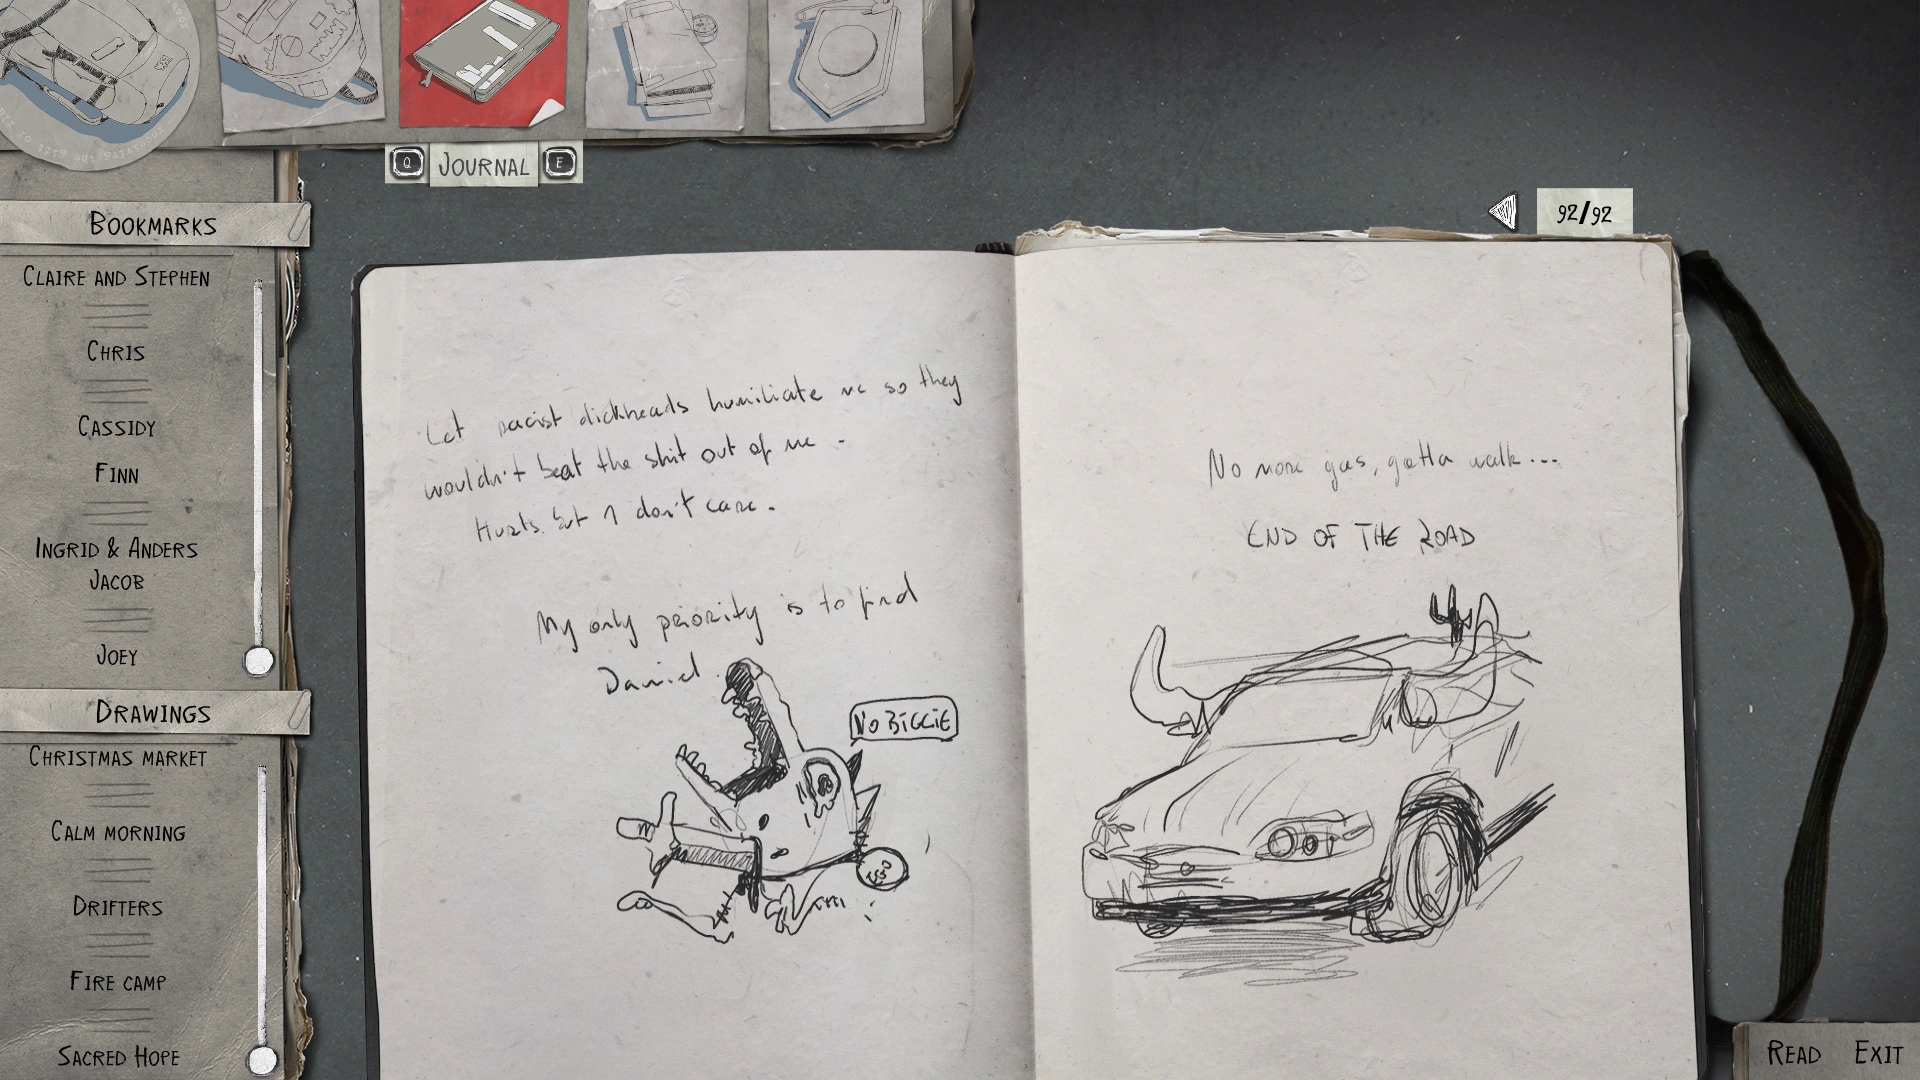 Q
JOURNAL
E
92/92
BOOKMARKS
CLAIRE AND STEPHEN
CHRIS
CASSIDY
FINN
INGRID & ANDERS
JACOB
JOEY
DRAWINGS
CHRISTMAS MARKET
CALM MORNING
DRIFTERS
FIRE CAMP
SACRED HOPE
Let racist dickheads humiliate me so they
wouldn't beat the shit out of me.
Hurts but I don't care.
My only priority is to find
Daniel.
NO BIGGIE
No more gas, gotta walk...
END OF THE ROAD
READ
EXIT